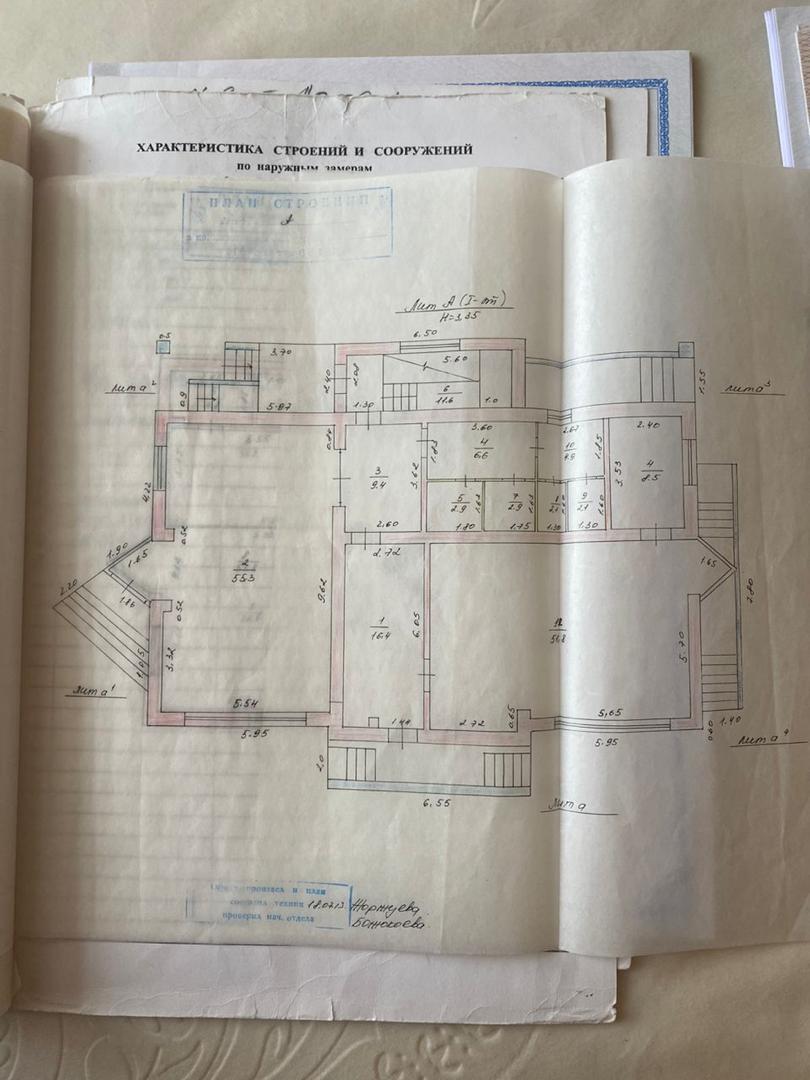 ХАРАКТЕРИСТИКА СТРОЕНИЙ И СООРУЖЕНИЙ
по наружным замерам
ПЛАН СТРОЕНИЙ
Лит А (I-эт)
H=3,35
6.50
0.5
3.70
5.60
2.40
2.08
1.35
Лит а²
Лит а³
0.9
5.87
1.30
6
11.6
1.0
3.60
2.67
2.40
4
6.6
1.83
10
4.9
1.85
3.53
4
8.5
3
9.4
3.62
4.22
5
2.9
1.63
7
2.9
1.63
2.1
9
2.1
1.60
0.52
2.60
1.80
1.75
1.30
1.30
2.72
1.90
1.65
1.65
2
55.3
2.20
1.86
0.52
9.62
7.80
1
16.4
6.05
51.8
5.70
3.32
4.05
Лит а¹
5.54
1.44
2.72
0.65
5.65
0.60
1.40
5.95
5.95
Лит а⁴
2.0
6.55
Лит а
произвел и план
составил техник 18.02.13
проверил нач. отдела